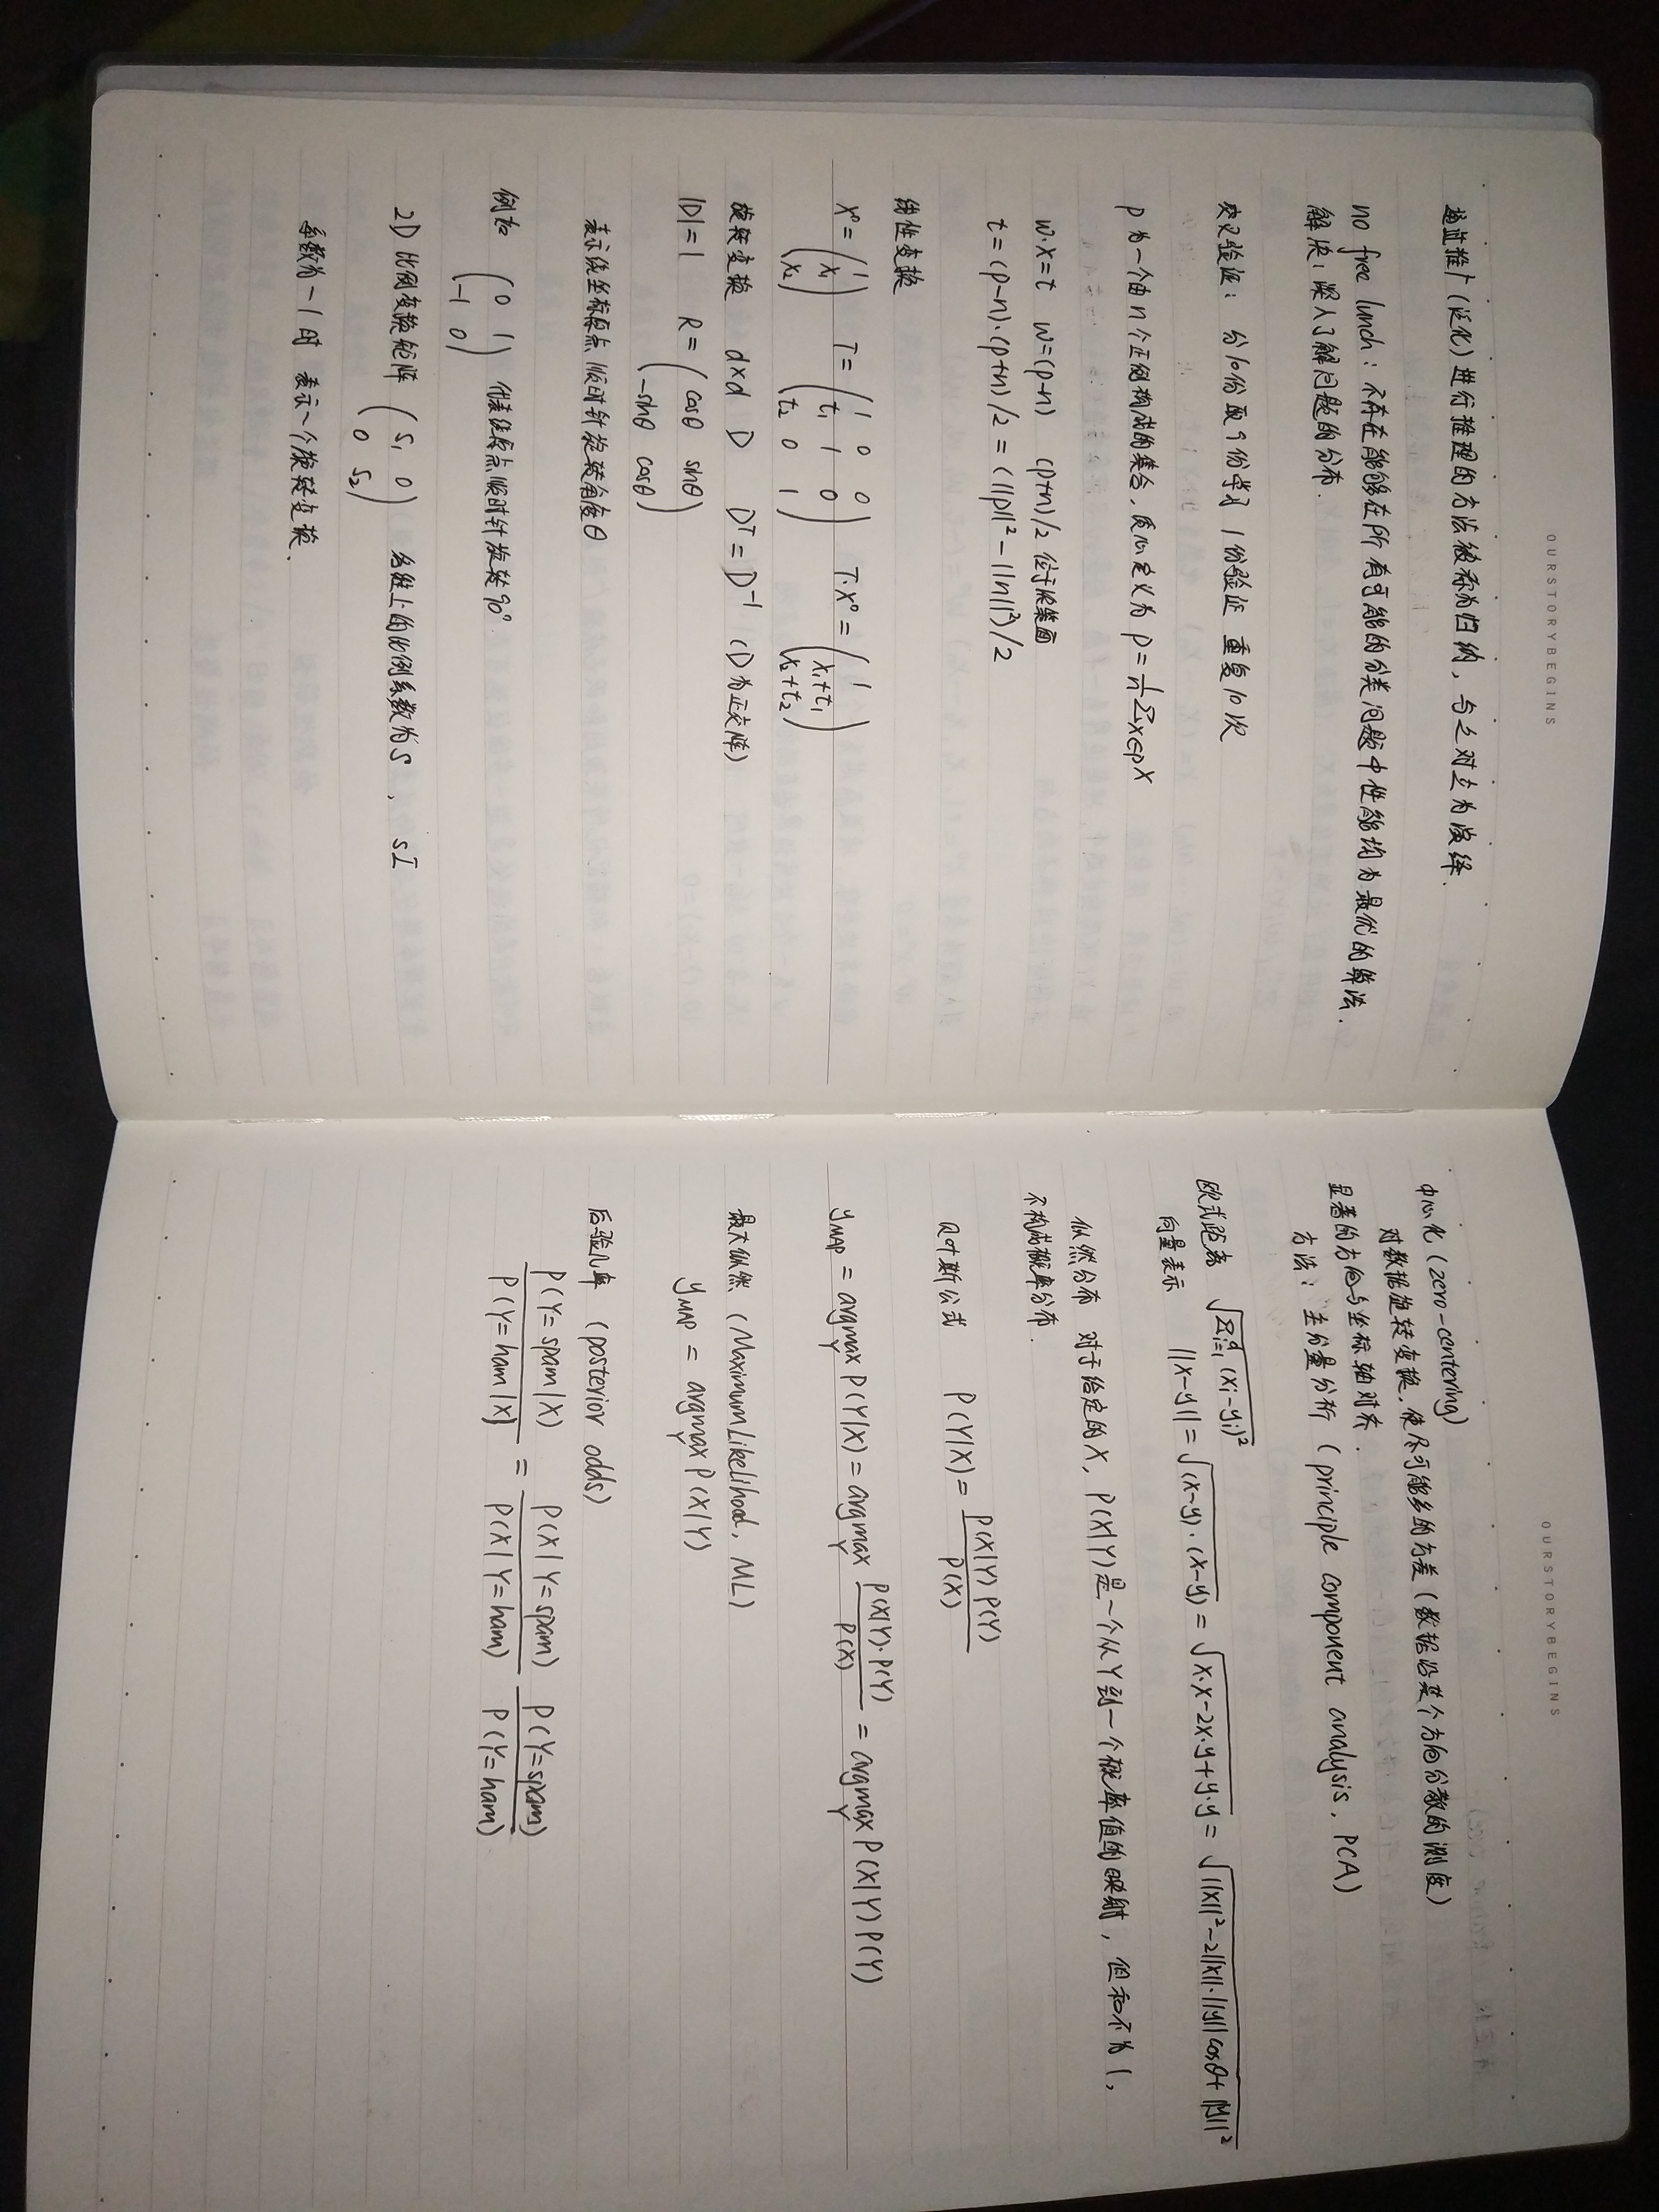 OURSTORYBEGINS
通过推广(泛化)进行推理的方法被称为归纳,与之对立为演绎.
no free lunch: 不存在能够在所有可能的分类问题中性能均为最优的算法.
解决: 深入了解问题的分布.
交叉验证: 分10份取9份学习 1份验证 重复10次
P 为一个由 n 个正例构成的集合, 质心定义为 P = 1/n Σx∈p X
w·x=t w=(p-n) (p+n)/2 位于决策面
t=(p-n)·(p+n)/2 = (||p||²-||n||²)/2
线性变换
X° = (1; x₁; x₂) T = (1 0 0; t₁ 1 0; t₂ 0 1) T·X° = (1; x₁+t₁; x₂+t₂)
旋转变换 d×d D Dᵀ=D⁻¹ (D为正交阵)
|D|=1 R = (cosθ sinθ; -sinθ cosθ)
表示绕坐标原点 顺时针旋转角度θ
例如 (0 1; -1 0) 代表绕原点顺时针旋转90°.
2D 比例变换矩阵 (S₁ 0; 0 S₂) 各维上的比例系数为S , sI
系数为-1时 表示一个旋转变换.
OURSTORYBEGINS
中心化 (zero-centering)
对数据旋转变换, 使尽可能多的方差(数据沿某个方向分散的测度)
显著的方向与坐标轴对齐.
方法: 主分量分析 (principle component analysis, PCA)
欧式距离 √Σᵢ₌₁ᵈ (xᵢ-yᵢ)²
向量表示 ||x-y|| = √(x-y)·(x-y) = √x·x-2x·y+y·y = √||x||²-2||x||·||y||cosθ+||y||²
似然分布 对于给定的X, P(X|Y)是一个从Y到一个概率值的映射, 但和不为1,
不构成概率分布.
贝叶斯公式 P(Y|X) = P(X|Y) P(Y) / P(X)
y_MAP = argmax_Y P(Y|X) = argmax_Y P(X|Y)·P(Y) / P(X) = argmax_Y P(X|Y) P(Y)
最大似然 (Maximum Likelihood, ML)
y_MAP = argmax_Y P(X|Y)
后验几率 (posterior odds)
P(Y=spam|X) / P(Y=ham|X) = P(X|Y=spam) / P(X|Y=ham) P(Y=spam) / P(Y=ham)